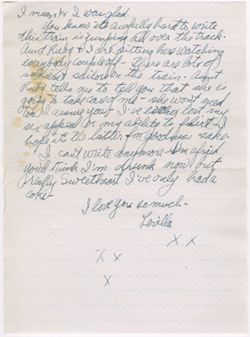 I meant & I was glad.
You know it's awfully hard to write
this train is jumping all over the track.
Aunt Ruby & I are sitting here watching
everybody couple off - there are lots of
soldiers & sailors on the train. Aunt
Ruby tells me to tell you that she is
going to take care of me - she won't need
to I assure you! I've either lost my
sex appeal or my ability to flirt - I
hope it's the latter for goodness sake.
I can't write anymore I'm afraid
you'll think I'm drunk now but
really Sweetheart I've only had a
coke.
I love you so much -
Lovilla
X X
X X
X